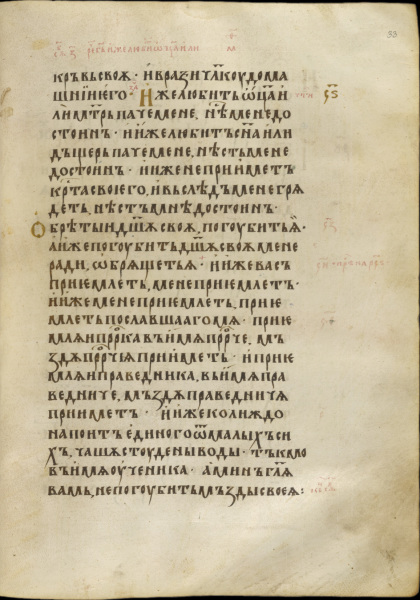 33
кръвь своѫ · и врази чл҃коу дома
щнии его · Иже любить ѿц҃а и
ли мт҃рь паче мене, нѣ мене до
стоинъ · и иже любить сн҃а или
дъщерь паче мене, нѣсть мене
достоинъ · и иже не прииметь
крⷭ҇та своіего, и въ слѣдъ мене грѧ
деть, нѣстъ мнѣ достоинъ ·
Обрѣтыи дш҃ѫ своѫ, погоубить ѫ ·
а иже погоубить дш҃ѫ своѫ мене
ради, ѡбрѧщеть ѧ · и иже васъ
приемлеть, мене приемлеть ·
и иже мене приемлеть, прие
млеть пославшааго мѧ · прие
млѧи прⷪ҇рка въ имѧ прⷪ҇рче, мъ
здѫ прⷪ҇рчѧ прииметь · и прие
млѧи праведника, въ имѧ пра
ведниче, мъздѫ праведничѧ
прииметь · и иже колиждо
напоить единого ѿ малыхъ си
хъ, чашѫ стоудены воды · тъкмо
въ имѧ оученика · аминь гл҃ѧ
вамь, не погоубить мъзды своеѧ :